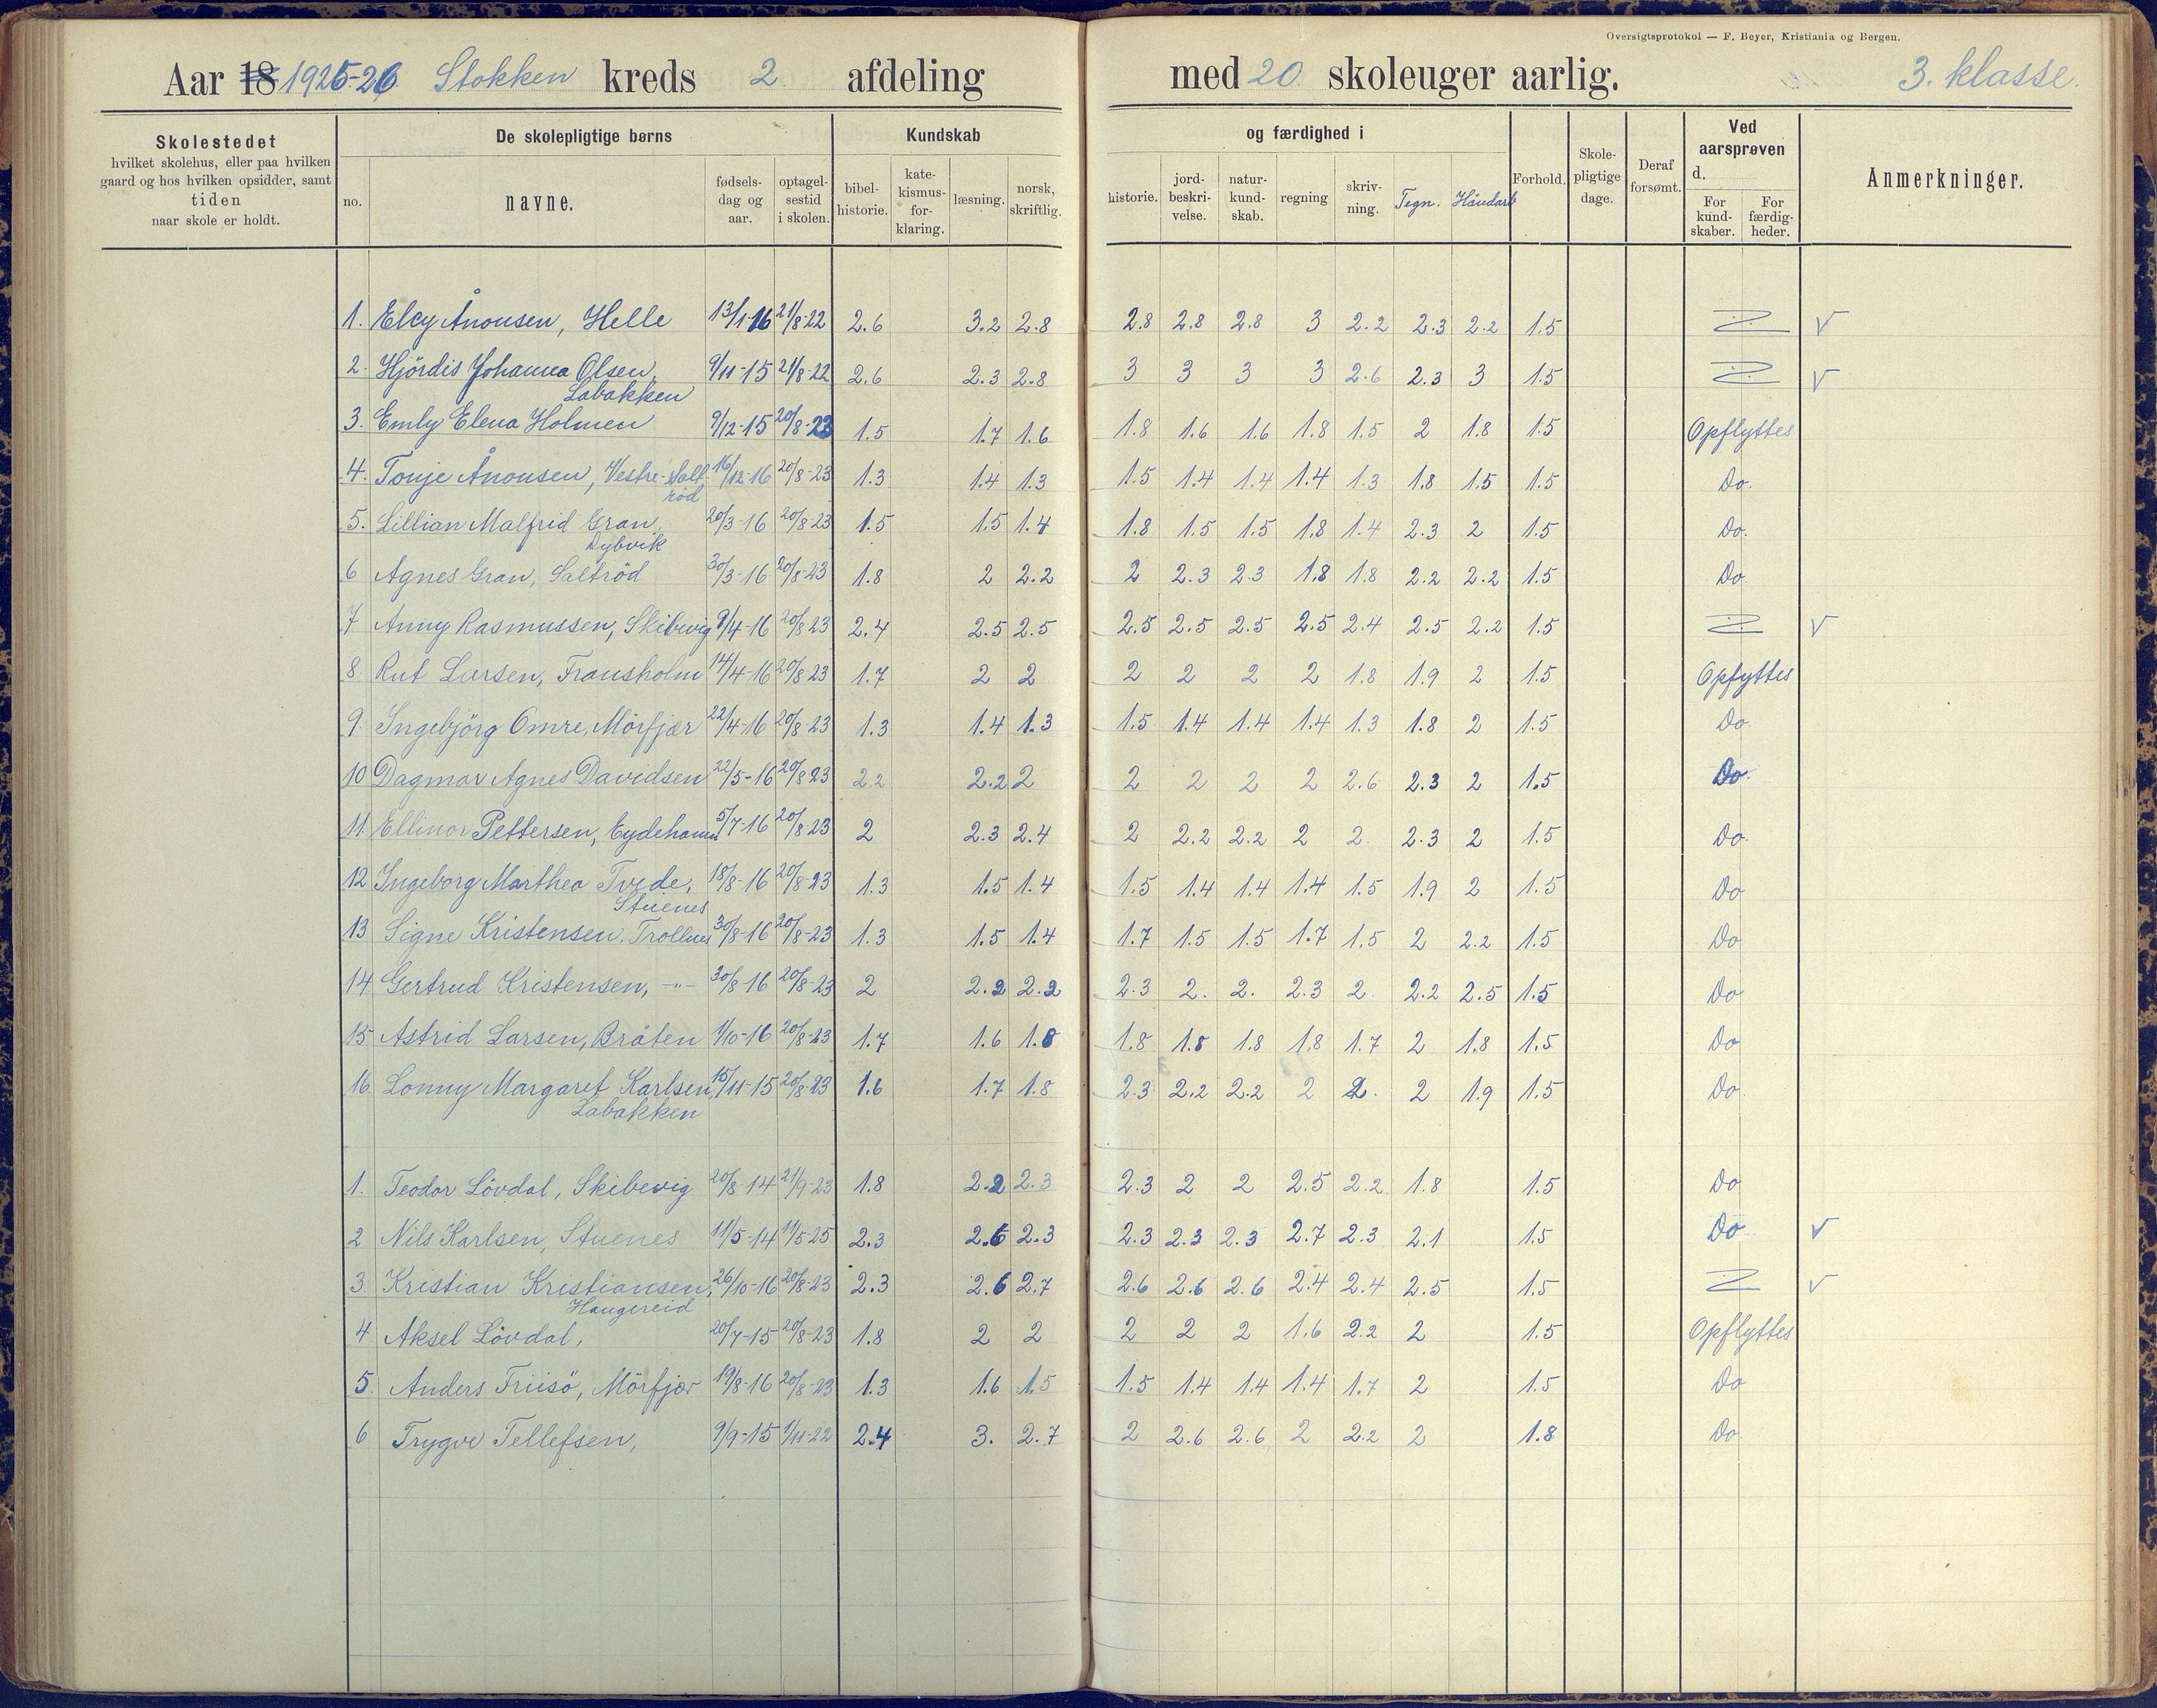 Oversigtsprotokol — F. Beyer, Kristiania og Bergen.
Aar 18 1925-26 Stokken kreds 2 afdeling med 20 skoleuger aarlig. 3. klasse.
Skolestedet
hvilket skolehus, eller paa hvilken
gaard og hos hvilken opsidder, samt
tiden
naar skole er holdt.
De skolepligtige børns
no.
navne.
fødsels-
dag og
aar.
optagel-
sestid
i skolen.
Kundskab
bibel-
historie.
kate-
kismus-
for-
klaring.
læsning.
norsk,
skriftlig.
og færdighed i
historie.
jord-
beskri-
velse.
natur-
kund-
skab.
regning
skriv-
ning.
Tegn.
Håndarb
Forhold.
Skole-
pligtige
dage.
Deraf
forsømt.
Ved
aarsprøven
d.
For
kund-
skaber.
For
færdig-
heder.
Anmerkninger.
1. Elcy Ånonsen, Helle 13/1-16 21/8-22 2.6 3.2 2.8 2.8 2.8 2.8 3 2.2 2.3 2.2 1.5 V
2. Hjördis Johanna Olsen, 9/11-15 21/8-22 2.6 2.3 2.8 3 3 3 3 2.6 2.3 3 1.5 V
Labakken
3. Emly Elena Holmen 9/12-15 20/8-23 1.5 1.7 1.6 1.8 1.6 1.6 1.8 1.5 2 1.8 1.5 Opflyttes
4. Tonje Ånonsen, Vestre-Salt- 16/12-16 20/8-23 1.3 1.4 1.3 1.5 1.4 1.4 1.4 1.3 1.8 1.5 1.5 Do.
röd
5. Lillian Malfrid Gran, 20/3-16 20/8-23 1.5 1.5 1.4 1.8 1.5 1.5 1.8 1.4 2.3 2 1.5 Do.
Dybvik
6 Agnes Gran, Saltröd 30/3-16 20/8-23 1.8 2 2.2 2 2.3 2.3 1.8 1.8 2.2 2.2 1.5 Do.
7 Anny Rasmussen, Skibevig 9/4-16 20/8-23 2.4 2.5 2.5 2.5 2.5 2.5 2.5 2.4 2.5 2.2 1.5 V
8 Rut Larsen, Fransholm 14/4-16 20/8-23 1.7 2 2 2 2 2 2 1.8 1.9 2 1.5 Opfyttes
9. Ingebjörg Omre, Mörfjær 22/4-16 20/8-23 1.3 1.4 1.3 1.5 1.4 1.4 1.4 1.3 1.8 2 1.5 Do
10 Dagmar Agnes Davidsen 22/5-16 20/8 23 2.2 2.2 2 2 2 2 2 2.6 2.3 2 1.5 Do.
11. Ellinor Pettersen, Eydehamn 5/7-16 20/8-23 2 2.3 2.4 2 2.2 2.2 2 2 2.3 2 1.5 Do.
12 Ingeborg Marthea Tvede, 18/8-16 20/8-23 1.3 1.5 1.4 1.5 1.4 1.4 1.4 1.5 1.9 2 1.5 Do
Stuenes
13 Signe Kristensen, Trollnes 30/8-16 20/8-23 1.3 1.5 1.4 1.7 1.5 1.5 1.7 1.5 2 2.2 1.5 Do
14 Gertrud Kristensen, -"- 30/8-16 20/8-23 2 2.2 2.2 2.3 2. 2. 2.3 2. 2.2 2.5 1.5 Do
15 Astrid Larsen, Bråten 1/10-16 20/8-23 1.7 1.6 1.8 1.8 1.8 1.8 1.8 1.7 2 1.8 1.5 Do
16. Lonny Margaret Karlsen, 15/11-15 20/8-23 1.6 1.7 1.8 2.3 2.2 2.2 2 2. 2 1.9 1.5 Do.
Labakken
1. Teodor Lövdal, Skibevig 20/8-14 21/9-23 1.8 2.2 2.3 2.3 2 2 2.5 2.2 1.8 1.5 Do
2 Nils Karlsen, Stuenes 11/5-14 11/5-25 2.3 2.6 2.3 2.3 2.3 2.3 2.7 2.3 2.1 1.5 Do V
3. Kristian Kristiansen, 26/10-16 20/8-23 2.3 2.6 2.7 2.6 2.6 2.6 2.4 2.4 2.5 1.5 V
Haugereid
4 Aksel Lövdal, 20/7-15 20/8-23 1.8 2 2 2 2 2 1.6 2.2 2 1.5 Opflyttes
5. Anders Friisö, Mörfjær 19/8-16 20/8-23 1.3 1.6 1.5 1.5 1.4 1.4 1.4 1.7 2 1.5 Do
6 Trygve Tellefsen, 9/9-15 1/11-22 2.4 3. 2.7 2 2.6 2.6 2 2.2 2 1.8 Do.